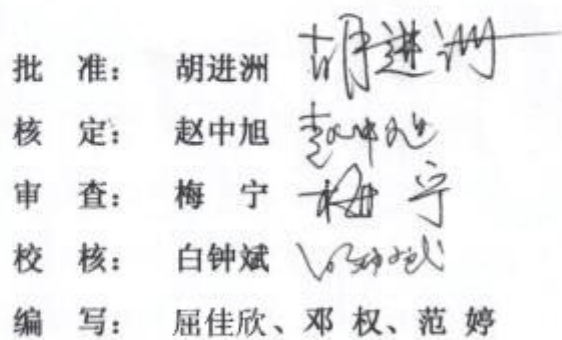 批 准： 胡进洲 胡进洲
核 定： 赵中旭 赵中旭
审 查： 梅 宁 梅宁
校 核： 白钟斌 白钟斌
编 写： 屈佳欣、邓 权、范 婷